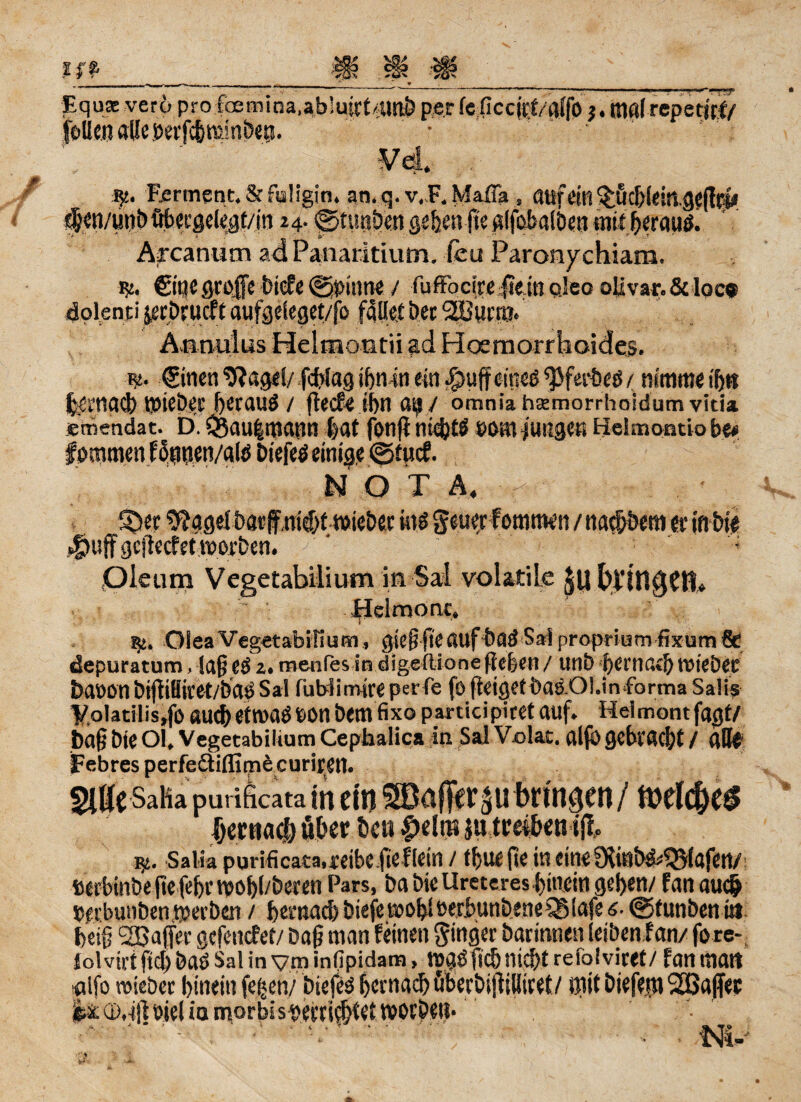 Equæ verò pro fœmina, abluirt/und per se siccirt/also 3. mal repetirt/
sollen alle verschwinden.
Vel.
℞. Ferment. & fuligin. an. q. v. F. Massa, auf ein Tüchlein gestri-
chen/und übergelegt/in 24. Stunden gehen sie alsobalden mit heraus.
Arcanum ad Panaritium, seu Paronychiam.
℞. Eine grosse dicke Spinne / suffocire sie in oleo olivar. & loco
dolenti zerdruckt aufgeleget/so fället der Wurm.
Annulus Helmontii ad Hœmorrhoides.
℞. Einen Nagel/ schlag ihn in ein Huff eines Pferdes / nimme ihn
hernach wieder heraus / stecke ihn an / omnia hæmorrhoidum vitia
emendat. D. Baußmann hat sonst nichts vom jungen Helmontio be-
kommen können/als dieses einige Stück.
NOTA.
Der Nagel darff nicht wieder ins Feuer kommen / nachdem er in die
Huff gesteckt worden.
Oleum Vegetabilium in Sal volatile zu bringen.
Helmont.
℞. Olea Vegetabilium, gieß sie auf das Sal proprium fixum &
depuratum, laß es 2. menses in digestione stehen / und hernach wieder
davon distilliret/das Sal sublimire per se so steiget das Ol. in forma Salis
Volatilis, so auch etwas von dem fixo participiret auf. Helmont sagt/
daß die Ol. Vegetabilium Cephalica in Sal Volat. also gebracht / alle
Febres perfectissimè curiren.
Alle Salia purificata in ein Wasser zu bringen / welches
hernach über den Helm zu treiben ist.
℞. Salia purificata, reibe sie klein / thue sie in eine Rinds-Blasen/
verbinde sie sehr wohl/deren Pars, da die Ureteres hinein gehen/ kan auch
verbunden werden / hernach diese wohl verbundene Blase 6. Stunden in
heiß Wasser gesencket/ daß man keinen Finger darinnen leiden kan/ so re-
solvirt sich das Sal in ▽m insipidam, was sich nicht resolviret / kan man
also wieder hinein setzen/ dieses hernach überdistilliret/ mit diesem Wasser
ist viel in morbis verrichtet worden.
Ni-